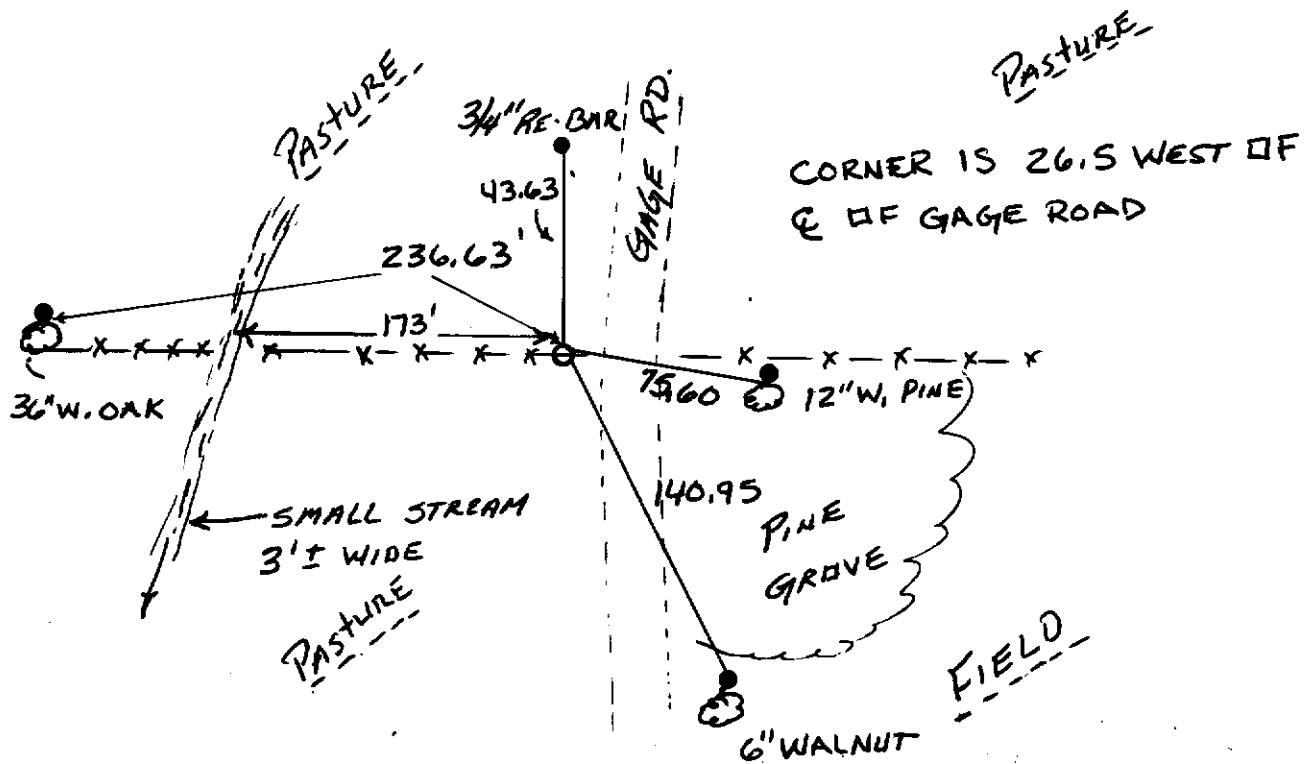 PASTURE
PASTURE
3/4" RE-BAR
GAGE RD.
CORNER IS 26.5 WEST OF
℄ OF GAGE ROAD
43.63'
236.63'
173'
36" W. OAK
75.60
12" W. PINE
140.95
SMALL STREAM
3'± WIDE
PINE
GROVE
PASTURE
FIELD
6" WALNUT